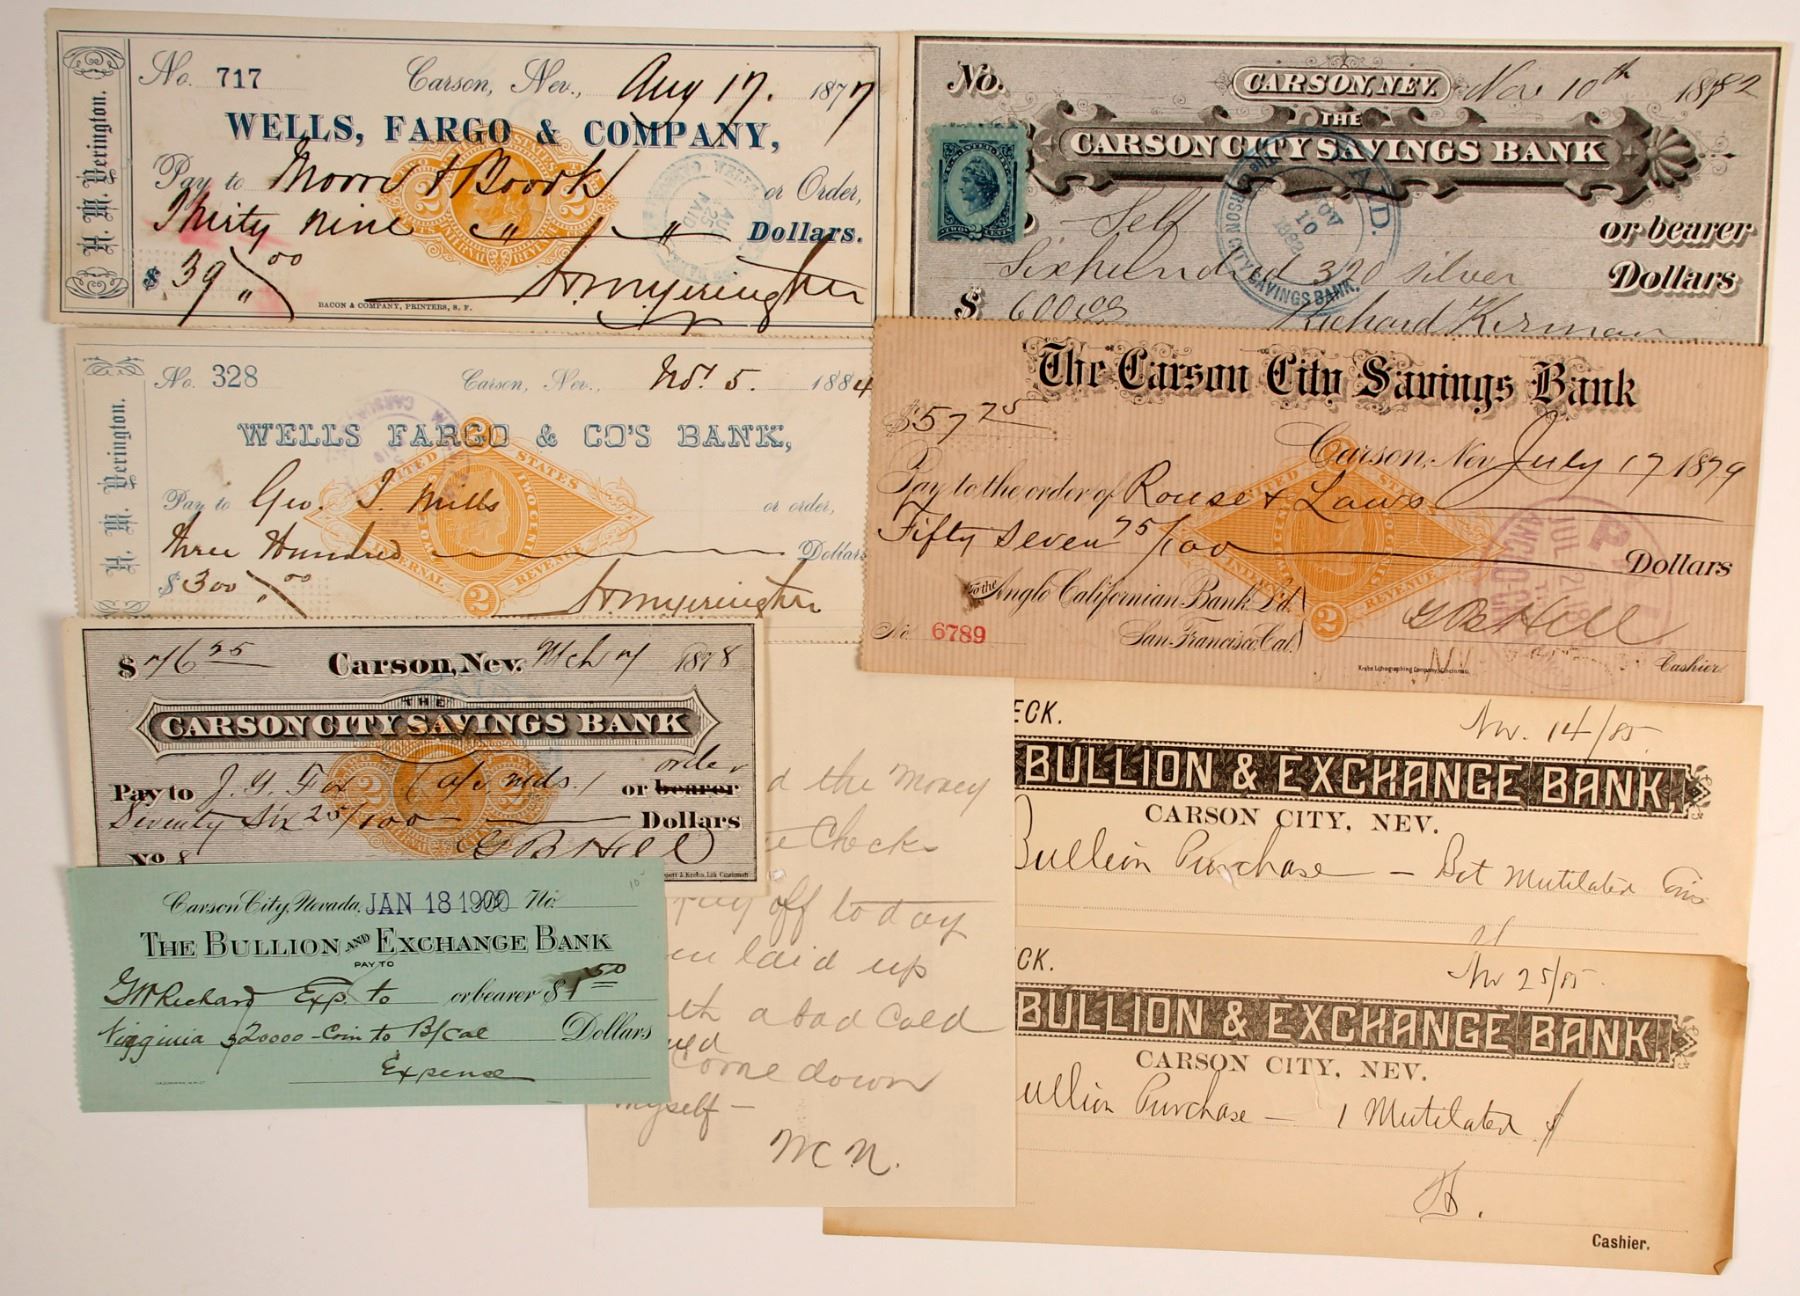 H. M. Yerington.
No. 717 Carson, Nev., Aug 17. 1877
WELLS, FARGO & COMPANY,
Pay to or Order,
Thirty nine Dollars.
$ 39 00
BACON & COMPANY, PRINTERS, S. F.
H M Yerington
No. CARSON, NEV. Nov 10th 1882
THE
CARSON CITY SAVINGS BANK
Self or bearer
Six hundred 320 silver Dollars
$ 600.00 Richard Kirman
PAID.
NOV
10
1882
CARSON CITY SAVINGS BANK.
H. M. Yerington.
No. 328 Carson, Nev., Nov 5. 1884
WELLS FARGO & CO'S BANK,
Pay to Geo. T. Mills or order,
Three Hundred Dollars
$ 300 00
UNITED STATES
TWO CENTS
INTERNAL REVENUE
2
H M Yerington
The Carson City Savings Bank
$57 75
Carson, Nev July 17 1879
Pay to the order of Rouse & Laws
Fifty Seven 75/100 Dollars
To the Anglo Californian Bank L'd.
San Francisco, Cal.
No. 6789
G B Hill
Cashier
Krebs Lithographing Company, Cincinnati.
$ 76 25 Carson, Nev. Mch 7 1878
THE
CARSON CITY SAVINGS BANK
order
Pay to J. G. Fox or bearer
Seventy Six 25/100 Dollars
No 8 G B Hill
ECK. Nov. 14/85.
BULLION & EXCHANGE BANK,
CARSON CITY, NEV.
Bullion Purchase — Bot Mutilated Coins
CK. Nov 25/85.
BULLION & EXCHANGE BANK,
CARSON CITY, NEV.
ullion Purchase — 1 Mutilated $
H.
Cashier.
Carson City, Nevada, JAN 18 1900 No.
THE BULLION AND EXCHANGE BANK
PAY TO
G W Richard Exp. to or bearer $ 50
Virginia $20000 - Coin to B/Cal Dollars
Expense
d the money
e Check
pay off today
laid up
th a bad Cold
Come down
myself —
W C N.